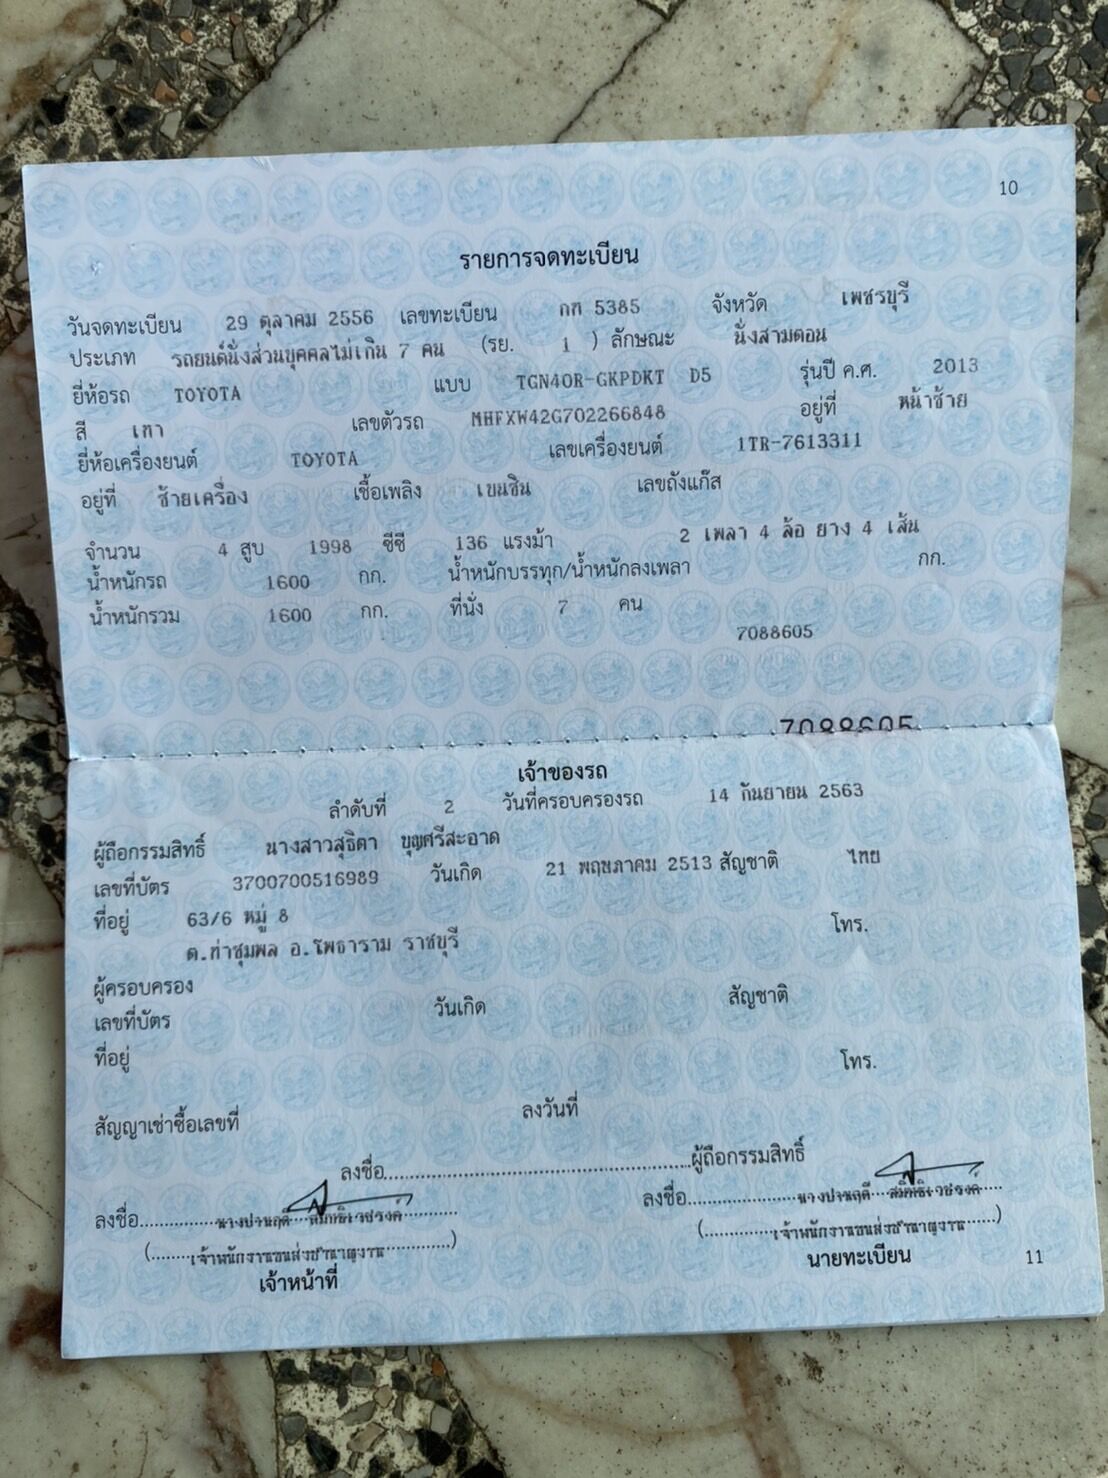 10
รายการจดทะเบียน
วันจดทะเบียน 29 ตุลาคม 2556 เลขทะเบียน กท 5385 จังหวัด เพชรบุรี
ประเภท รถยนต์นั่งส่วนบุคคลไม่เกิน 7 คน (รย. 1 ) ลักษณะ นั่งสามตอน
ยี่ห้อรถ TOYOTA แบบ TGN40R-GKPDKT D5 รุ่นปี ค.ศ. 2013
สี เทา เลขตัวรถ MHFXW42G702266848 อยู่ที่ หน้าซ้าย
ยี่ห้อเครื่องยนต์ TOYOTA เลขเครื่องยนต์ 1TR-7613311
อยู่ที่ ซ้ายเครื่อง เชื้อเพลิง เบนซิน เลขถังแก๊ส
จำนวน 4 สูบ 1998 ซีซี 136 แรงม้า 2 เพลา 4 ล้อ ยาง 4 เส้น
น้ำหนักรถ 1600 กก. น้ำหนักบรรทุก/น้ำหนักลงเพลา กก.
น้ำหนักรวม 1600 กก. ที่นั่ง 7 คน
7088605
7088605
เจ้าของรถ
ลำดับที่ 2 วันที่ครอบครองรถ 14 กันยายน 2563
ผู้ถือกรรมสิทธิ์ นางสาวสุธิตา บุญศรีสะอาด
เลขที่บัตร 3700700516989 วันเกิด 21 พฤษภาคม 2513 สัญชาติ ไทย
ที่อยู่ 63/6 หมู่ 8 โทร.
ต.ท่าชุมพล อ.โพธาราม ราชบุรี
ผู้ครอบครอง
เลขที่บัตร วันเกิด สัญชาติ
ที่อยู่ โทร.
สัญญาเช่าซื้อเลขที่ ลงวันที่
ลงชื่อ ผู้ถือกรรมสิทธิ์
ลงชื่อ นางปานฤดี ลงชื่อ นางปานฤดี
(เจ้าพนักงานขนส่งชำนาญงาน) (เจ้าพนักงานขนส่งชำนาญงาน)
เจ้าหน้าที่ นายทะเบียน
11